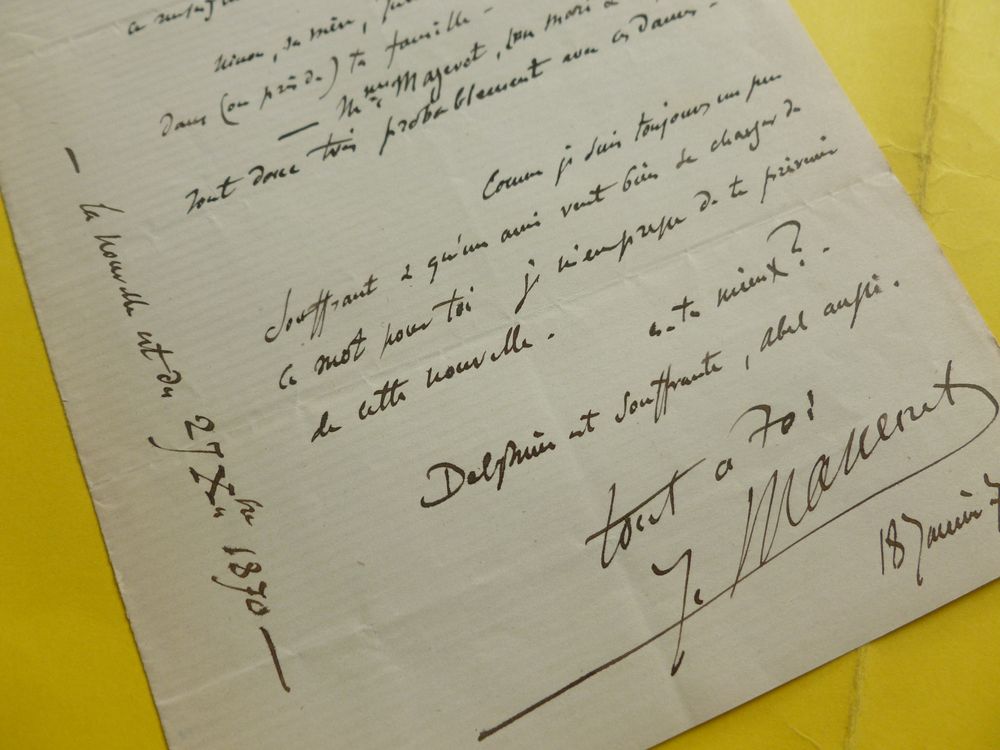 Ninon, sa mère,
dans (ou près de) ta famille -
— Mme Mageret, son mari
sont donc très probablement avec ces dames -
Comme je suis toujours un peu
souffrant & qu'un ami veut bien se charger de
ce mot pour toi je m'empresse de te prévenir
de cette nouvelle - es-tu mieux ? -
Delphine est souffrante, abel aussi.
tout a Toi
J. Masseret
18 Janvier
— la nouvelle est du 27 Xbre 1870 —